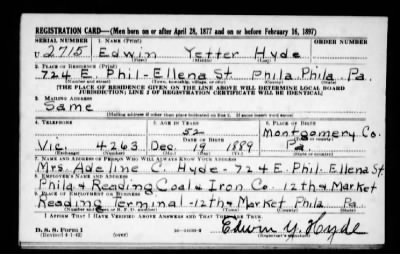 REGISTRATION CARD—(Men born on or after April 28, 1877 and on or before February 16, 1897)
SERIAL NUMBER 1. NAME (Print) ORDER NUMBER
U 2715 Edwin Yetter Hyde
2. PLACE OF RESIDENCE (Print)
724 E. Phil-Ellena St Phila Phila Pa.
(Number and street) (Town, township, village, or city) (County) (State)
[THE PLACE OF RESIDENCE GIVEN ON THE LINE ABOVE WILL DETERMINE LOCAL BOARD
JURISDICTION; LINE 2 OF REGISTRATION CERTIFICATE WILL BE IDENTICAL]
3. MAILING ADDRESS
Same
[Mailing address if other than place indicated on line 2. If same insert word same]
4. TELEPHONE 5. AGE IN YEARS 6. PLACE OF BIRTH
52 Montgomery Co.
DATE OF BIRTH
Vic. 4263 Dec. 19 1889 Pa
(Exchange) (Number) (Mo.) (Day) (Yr.) (State or country)
7. NAME AND ADDRESS OF PERSON WHO WILL ALWAYS KNOW YOUR ADDRESS
Mrs. Adeline C. Hyde-724 E. Phil-Ellena St
8. EMPLOYER'S NAME AND ADDRESS
Phila & Reading Coal & Iron Co. 12th & Market
9. PLACE OF EMPLOYMENT OR BUSINESS
Reading Terminal-12th & Market Phila Pa
I AFFIRM THAT I HAVE VERIFIED ABOVE ANSWERS AND THAT THEY ARE TRUE.
D. S. S. Form 1
(Revised 4-1-42) (over) Edwin Y. Hyde